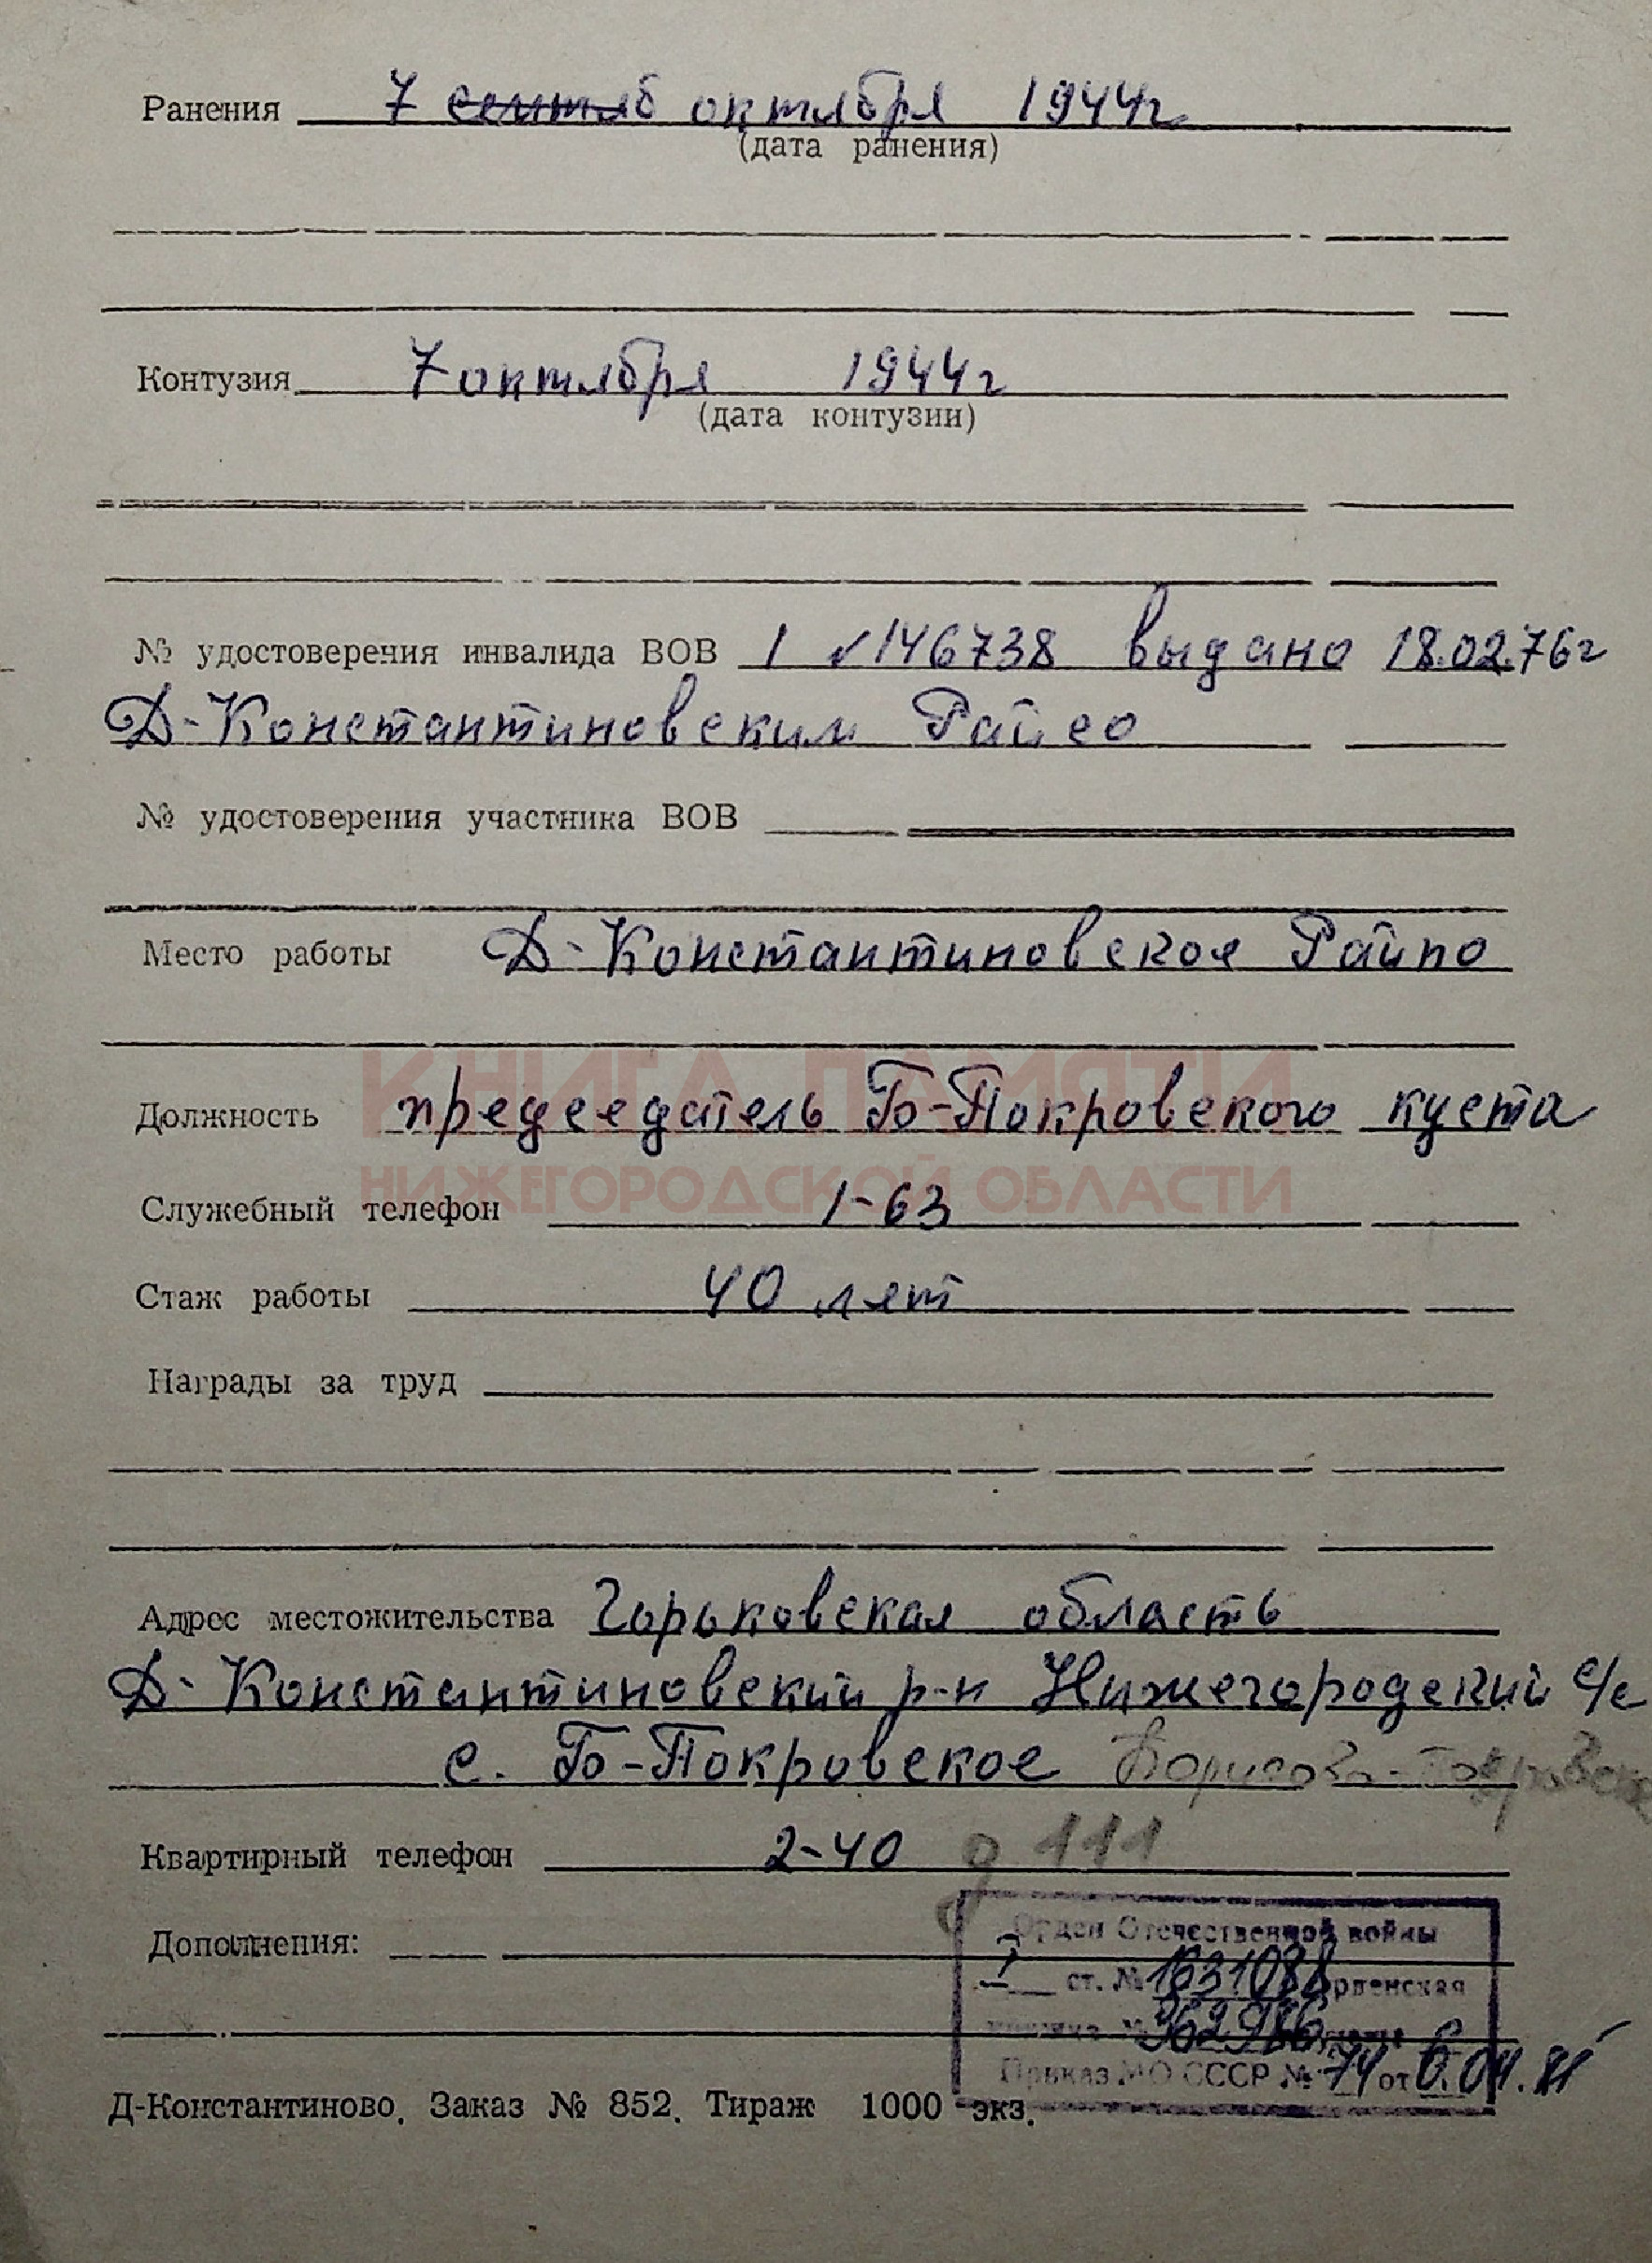 Ранения 7 сентяб октября 1944г
(дата ранения)
Контузия 7 октября 1944г
(дата контузии)
№ удостоверения инвалида ВОВ 1 √146738 выдано 18.02.76г
Д-Константиновским Райсо
№ удостоверения участника ВОВ
Место работы Д-Константиновское Райпо
КНИГА ПАМЯТИ
Должность председатель Б-Покровского куста
НИЖЕГОРОДСКОЙ ОБЛАСТИ
Служебный телефон 1-63
Стаж работы 40 лет
Награды за труд
Адрес местожительства Горьковская область
Д-Константиновский р-н Нижегородский с/с
с. Б-Покровское Борисово-Покровское
Квартирный телефон 2-40 д 111
Орден Отечественной войны
Дополнения:
I ст. № 1631088 рденская
№ 962986
Приказ МО СССР № 74 от 6.04.
Д-Константиново. Заказ № 852. Тираж 1000 экз.